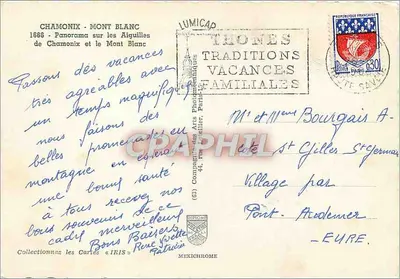 CHAMONIX - MONT BLANC
1688 - Panorama sur les Aiguilles
de Chamonix et le Mont Blanc
Passons des vacances
très agréables avec
un temps magnifique
nous faisons des
belles promenades en
montagne en espérant
une bonne santé
à tous recevez nos
bons souvenirs de ce
cadre merveilleux
Bons Baisers
René Yvette
Patricia
Collectionnez les Cartes "IRIS"
LUMICAP
MEXICHROME
THONES
TRADITIONS
VACANCES
FAMILIALES
REPUBLIQUE FRANÇAISE
0,30
PARIS
CPAPHIL
Mr et Mme Bourgais A-
St Gilles-St Germain
Village par
Pont-Audemer
-EURE.